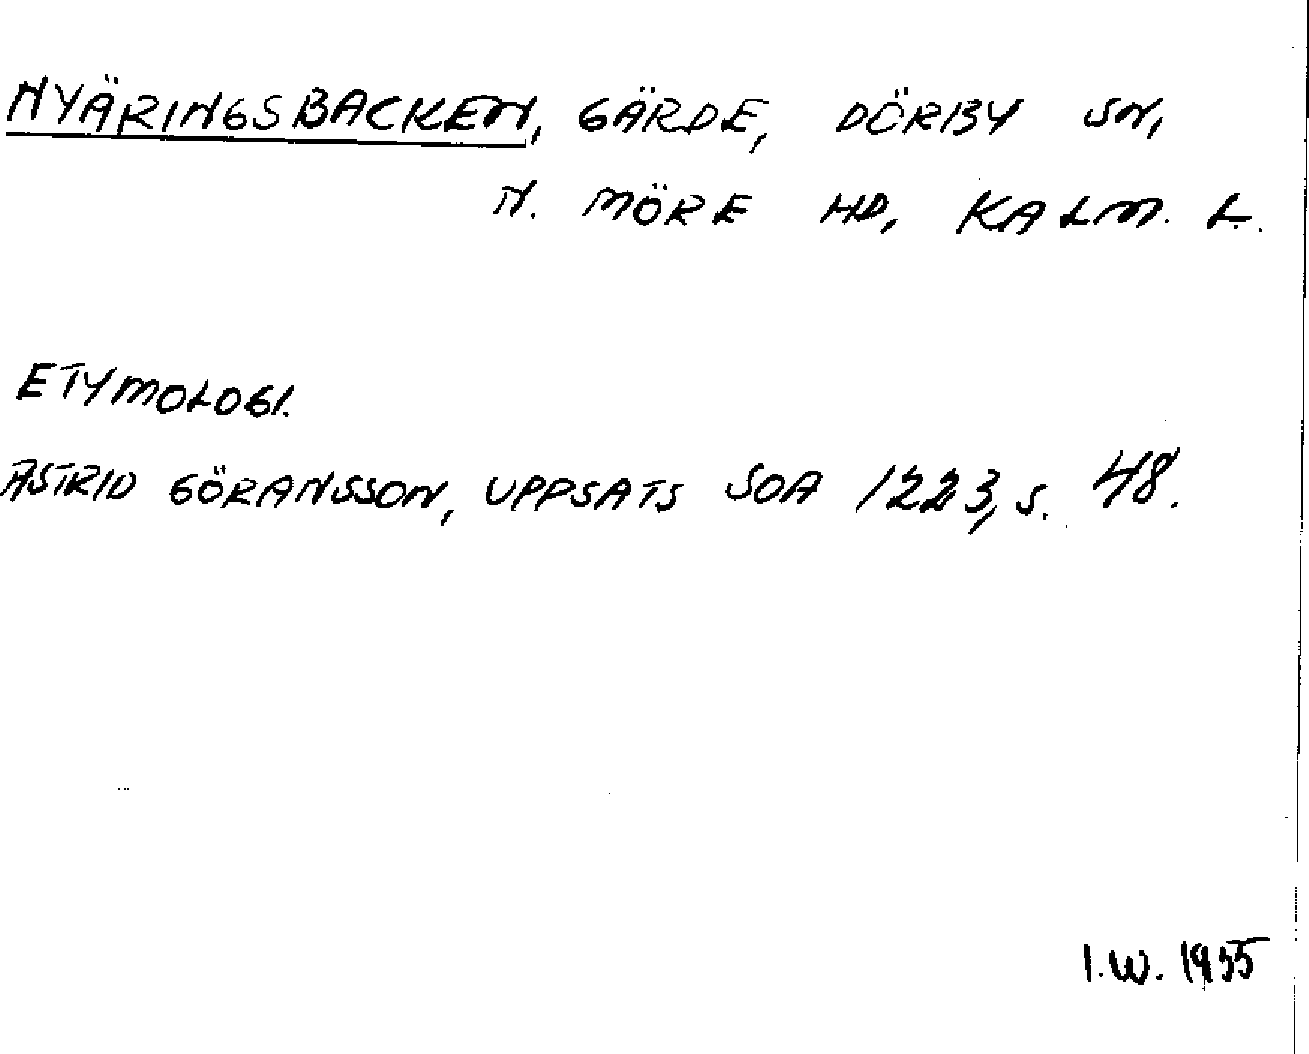 NYÄRINGSBACKEN, GÄRDE, DÖRBY SN,
N. MÖRE HD, KALM. L.
ETYMOLOGI.
ASTRID GÖRANSSON, UPPSATS SOA 1223, S. 48.
I.W. 1955